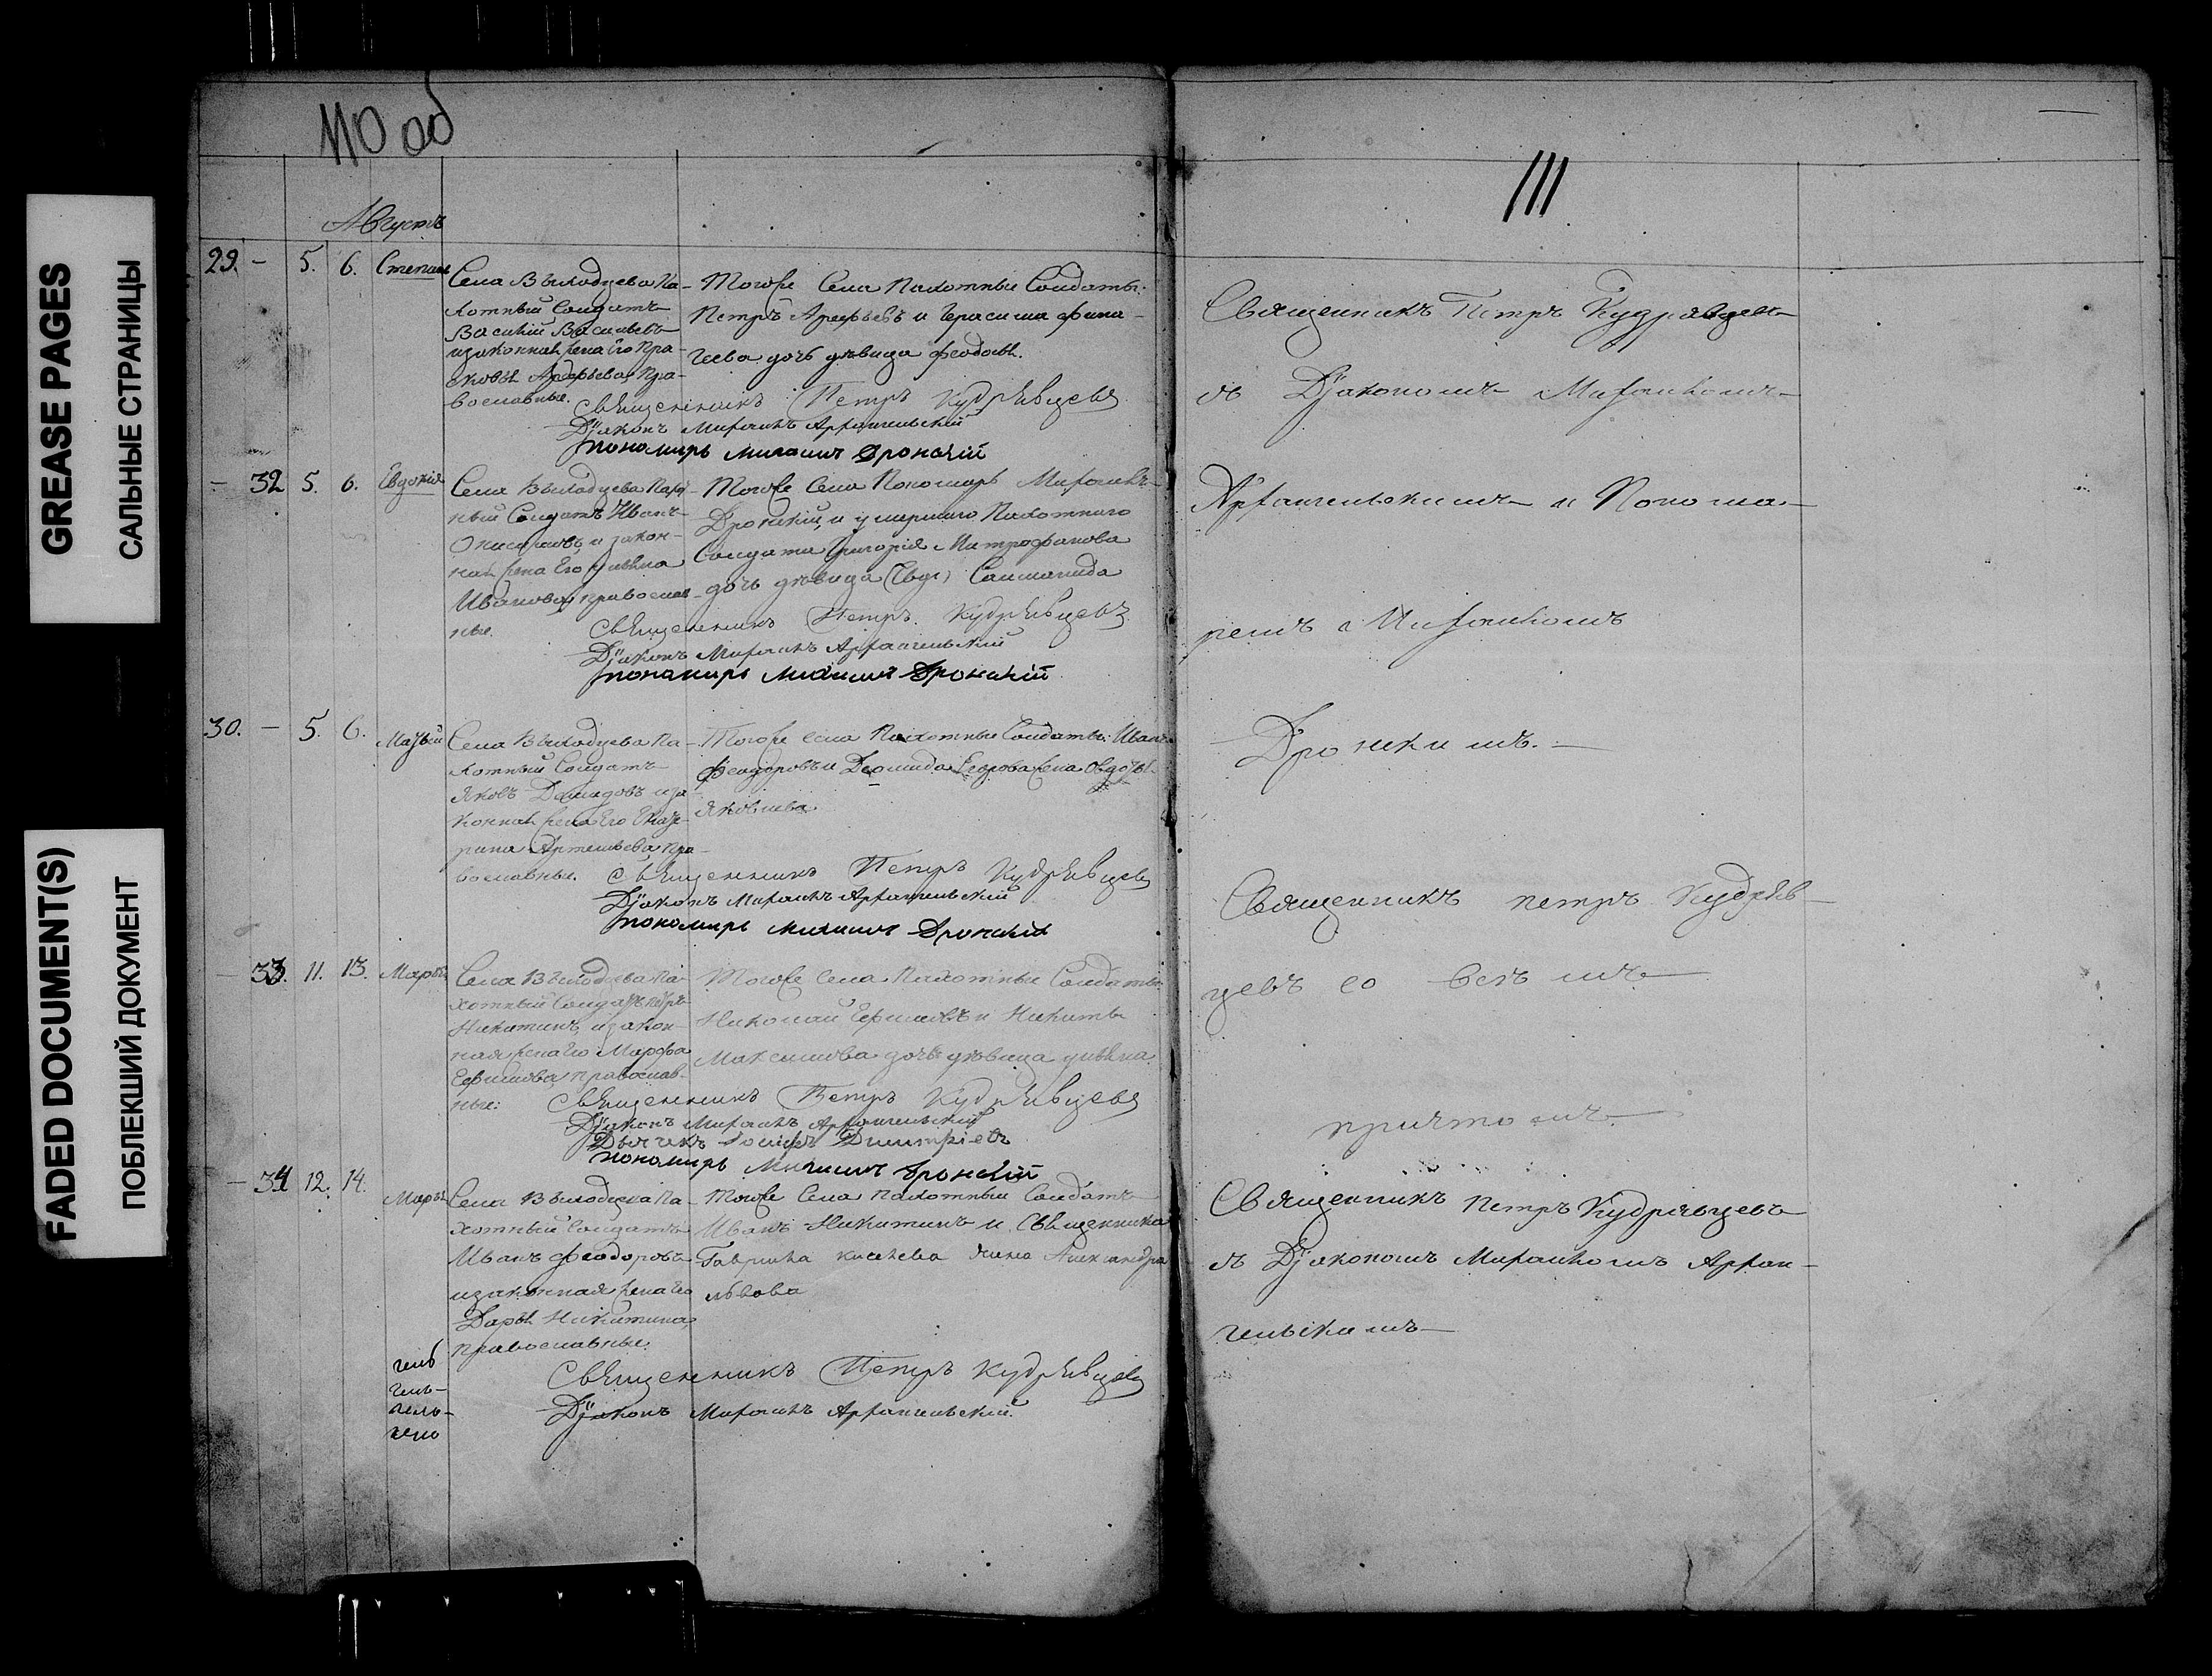 GREASE PAGES
САЛЬНЫЕ СТРАНИЦЫ
FADED DOCUMENT(S)
ПОБЛЕКШИЙ ДОКУМЕНТ
110 об
Августъ
29. – 5. 6. Степанъ
Села Выходцева Па-
хотный Солдатъ
Василий Васильевъ
и законная жена Его Пра-
сковья Арефьева, Пра-
вославные.
Тогоже Села Пахотные Солдаты:
Петръ Арефьевъ и Герасима
дочь дѣвица Феодосья.
Священникъ Петръ Кудрявцевъ
Дїаконъ Михаилъ Архангельскїй
Пономарь Михаилъ Дронскїй
– 32 5. 6. Евдокія
Села Выходцева Пахот-
ный Солдатъ Иванъ
и закон-
ная жена Его Ульяна
Иванова, православ-
ные.
Тогоже Села Пономарь Михаилъ
Дронскїй, и умершаго Пахотнаго
Солдата Григорія Митрофанова
дочь дѣвица Саломанида
Священникъ Петръ Кудрявцевъ
Дїаконъ Михаилъ Архангельскїй
Пономарь Михаилъ Дронскїй
30. – 5. 6.
Села Выходцева Па-
хотный Солдатъ
Яковъ и за-
конная жена Его Екате-
рина Артемьева, пра-
вославные.
Тогоже села Пахотные Солдаты: Иванъ
Феодоровъ и Егорова жена
Яковлева.
Священникъ Петръ Кудрявцевъ
Дїаконъ Михаилъ Архангельскїй
Пономарь Михаилъ Дронскїй
– 33. 11. 13. Марья
Села Выходцева Па-
хотный Солдатъ Петръ
Никитинъ, и закон-
ная жена Его Марфа
Ефимова, православ-
ные:
Тогоже Села Пахотные Солдаты:
Николай Ефимовъ и Никиты
Максимова дочь дѣвица Ульяна.
Священникъ Петръ Кудрявцевъ
Дїаконъ Михаилъ Архангельскїй
Дьячекъ Димитріевъ
Пономарь Михаилъ Дронскїй
– 34 12. 14. Марья
Села Выходцева Па-
хотный Солдатъ
Иванъ Феодоровъ
и законная жена Его
Дарья Никитина,
православные.
Тогоже Села пахотный Солдатъ
Иванъ Никитинъ и Священника
Гаврила жена Александра
Львова
Священникъ Петръ Кудрявцевъ
Дїаконъ Михаилъ Архангельскїй.
111
Священникъ Петръ Кудрявцевъ
съ Дїакономъ Михаиломъ
Архангельскимъ и Понома-
ремъ Михаиломъ
Дронскимъ.
Священникъ петръ Кудряв-
цевъ со всемъ
причтомъ
Священникъ Петръ Кудрявцевъ
съ Дїакономъ Михаиломъ Архан-
гельскимъ